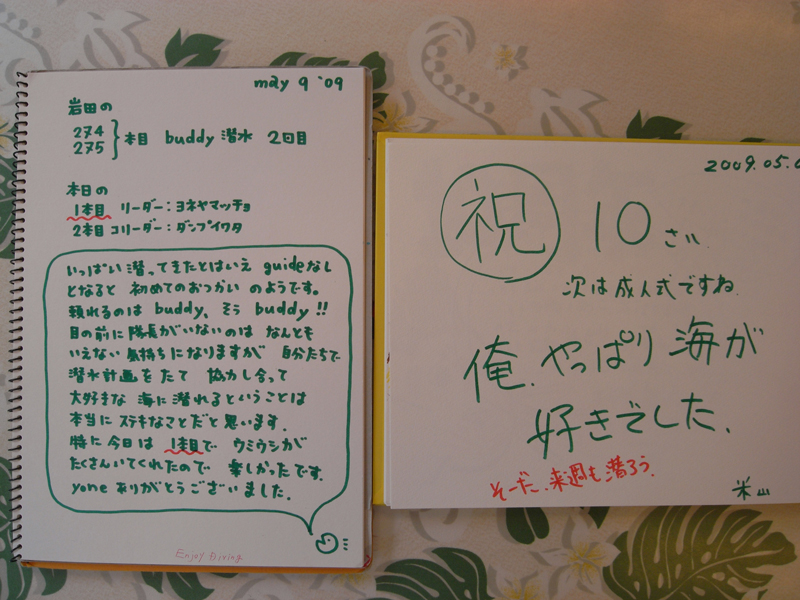 may 9 '09
岩田の
274
275
本目 buddy 潜水 2回目
本日の
1本目 リーダー:ヨネヤマッチョ
2本目コリーダー:ダンプイワタ
いっぱい潜ってきたとはいえ guideなし
となると 初めてのおつかい のようです。
頼れるのは buddy、そう buddy!!
目の前に隊長がいないのは なんとも
いえない気持ちになりますが 自分たちで
潜水計画をたて 協力し合って
大好きな 海に潜れるということは
本当に ステキなことだと思います.
特に今日は 1本目で ウミウシが
たくさんいてくれたので 楽しかったです.
yone ありがとうございました.
Enjoy Diving
2009.05.0
祝 10さい.
次は成人式ですね.
俺.やっぱり海が
好きでした.
そーだ.来週も潜ろう.
米山